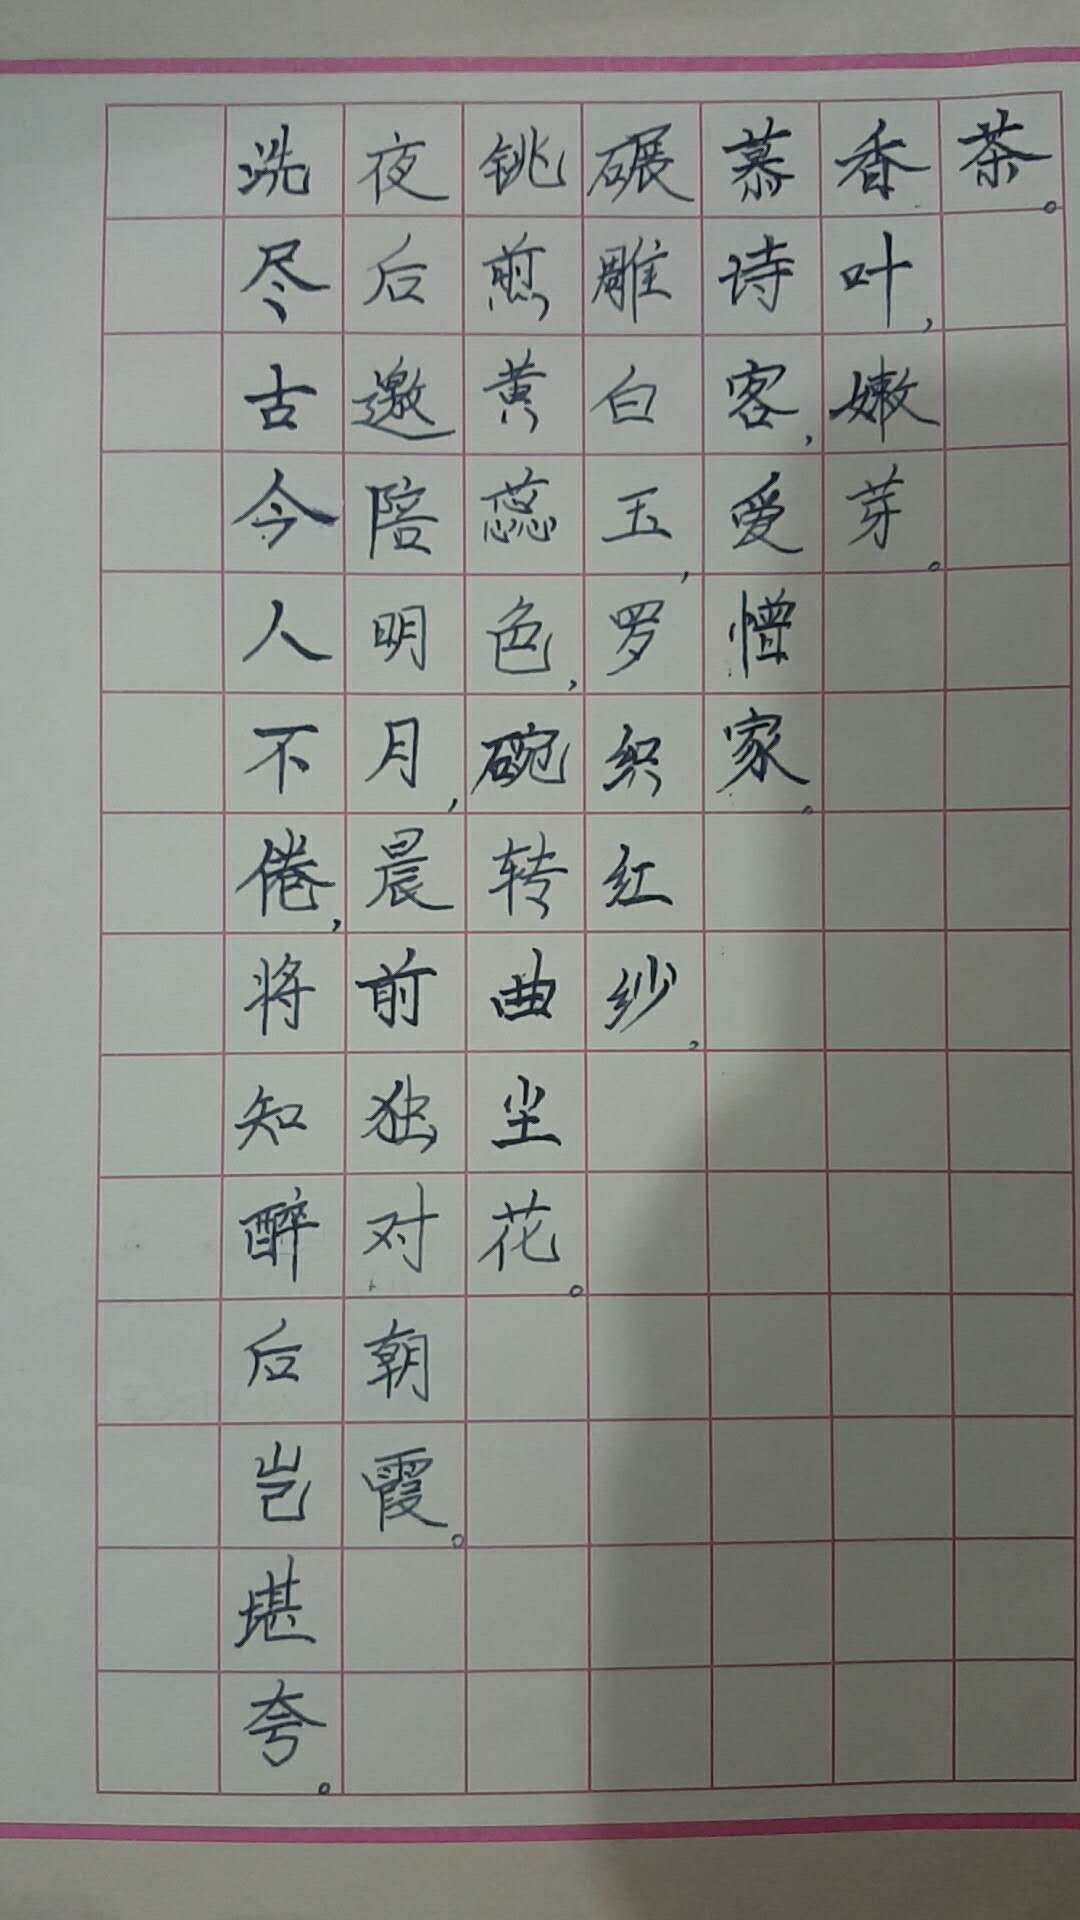 茶。
香叶,嫩芽。
慕诗客,爱憎家。
碾雕白玉,罗织红纱。
铫煎黄蕊色,碗转曲尘花。
夜后邀陪明月,晨前独对朝霞。
洗尽古今人不倦,将知醉后岂堪夸。